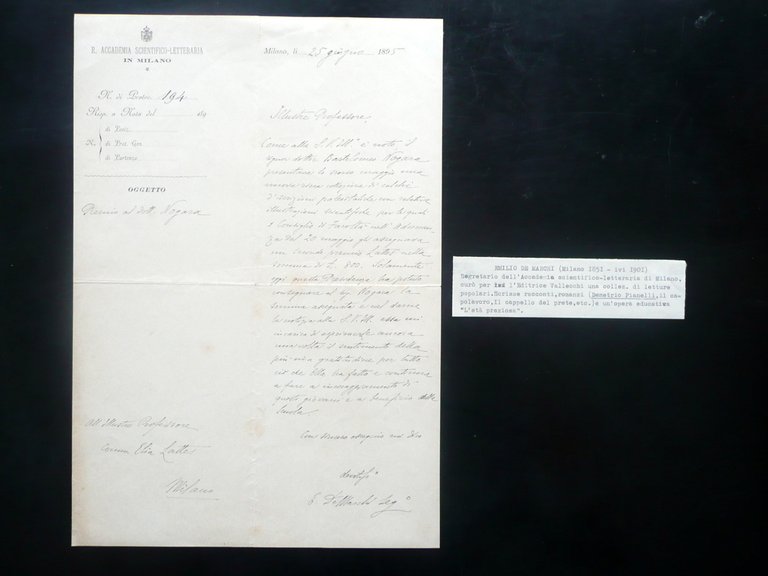 R. ACCADEMIA SCIENTIFICO-LETTERARIA
IN MILANO
N. di Protoc. 194
Risp. a Nota del 189
di Posiz.
N. di Prot. Gen.
di Partenza
OGGETTO
Premio al dott. Nogara
All'Illustre Professore
Comm Elia Lattes
Milano
Milano, li 25 giugno 1895
Illustre Professore
Come alla S.V. Ill.ª è noto, il
signor dottor Bartolomeo Nogara
presentava lo scorso maggio una
numerosa collezione di calchi
d'iscrizioni con relative
illustrazioni scientifiche per le quali
il Consiglio di Facoltà nell'Adunanza
del 20 maggio gli assegnava
un secondo premio Lattes nella
somma di L. 800. Solamente
oggi questa Presidenza ha potuto
consegnare al sig Nogara la
somma assegnata e nel darne
la notizia alla S.V. Ill. essa mi
incarica di esprimerle ancora
una volta il sentimento della
più viva gratitudine per tutto
ciò che Ella ha fatto e continua
a fare a incoraggiamento di
questi giovani e a beneficio della
Scuola.
Con sincero ossequio mi dico
devotiss°
E. De Marchi Seg°
EMILIO DE MARCHI (Milano 1851 - ivi 1901)
Segretario dell'Accademia scientifico-letteraria di Milano,
curò per l'Editrice Vallecchi una collez. di letture
popolari. Scrisse racconti, romanzi (Demetrio Pianelli, il ca-
polavoro, Il cappello del prete, etc.) e un'opera educativa
"L'età preziosa".